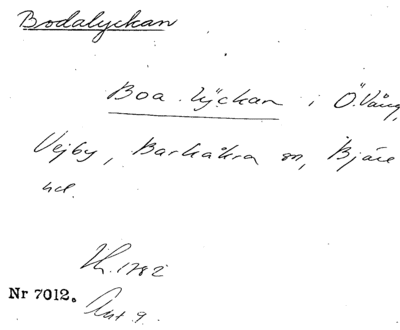 Bodalyckan
Boa lyckan i Ö. Väng,
Vejby, Barkåkra sn, Bjäre
hd.
Lh. 1782
Nr 7012. Akt 9.